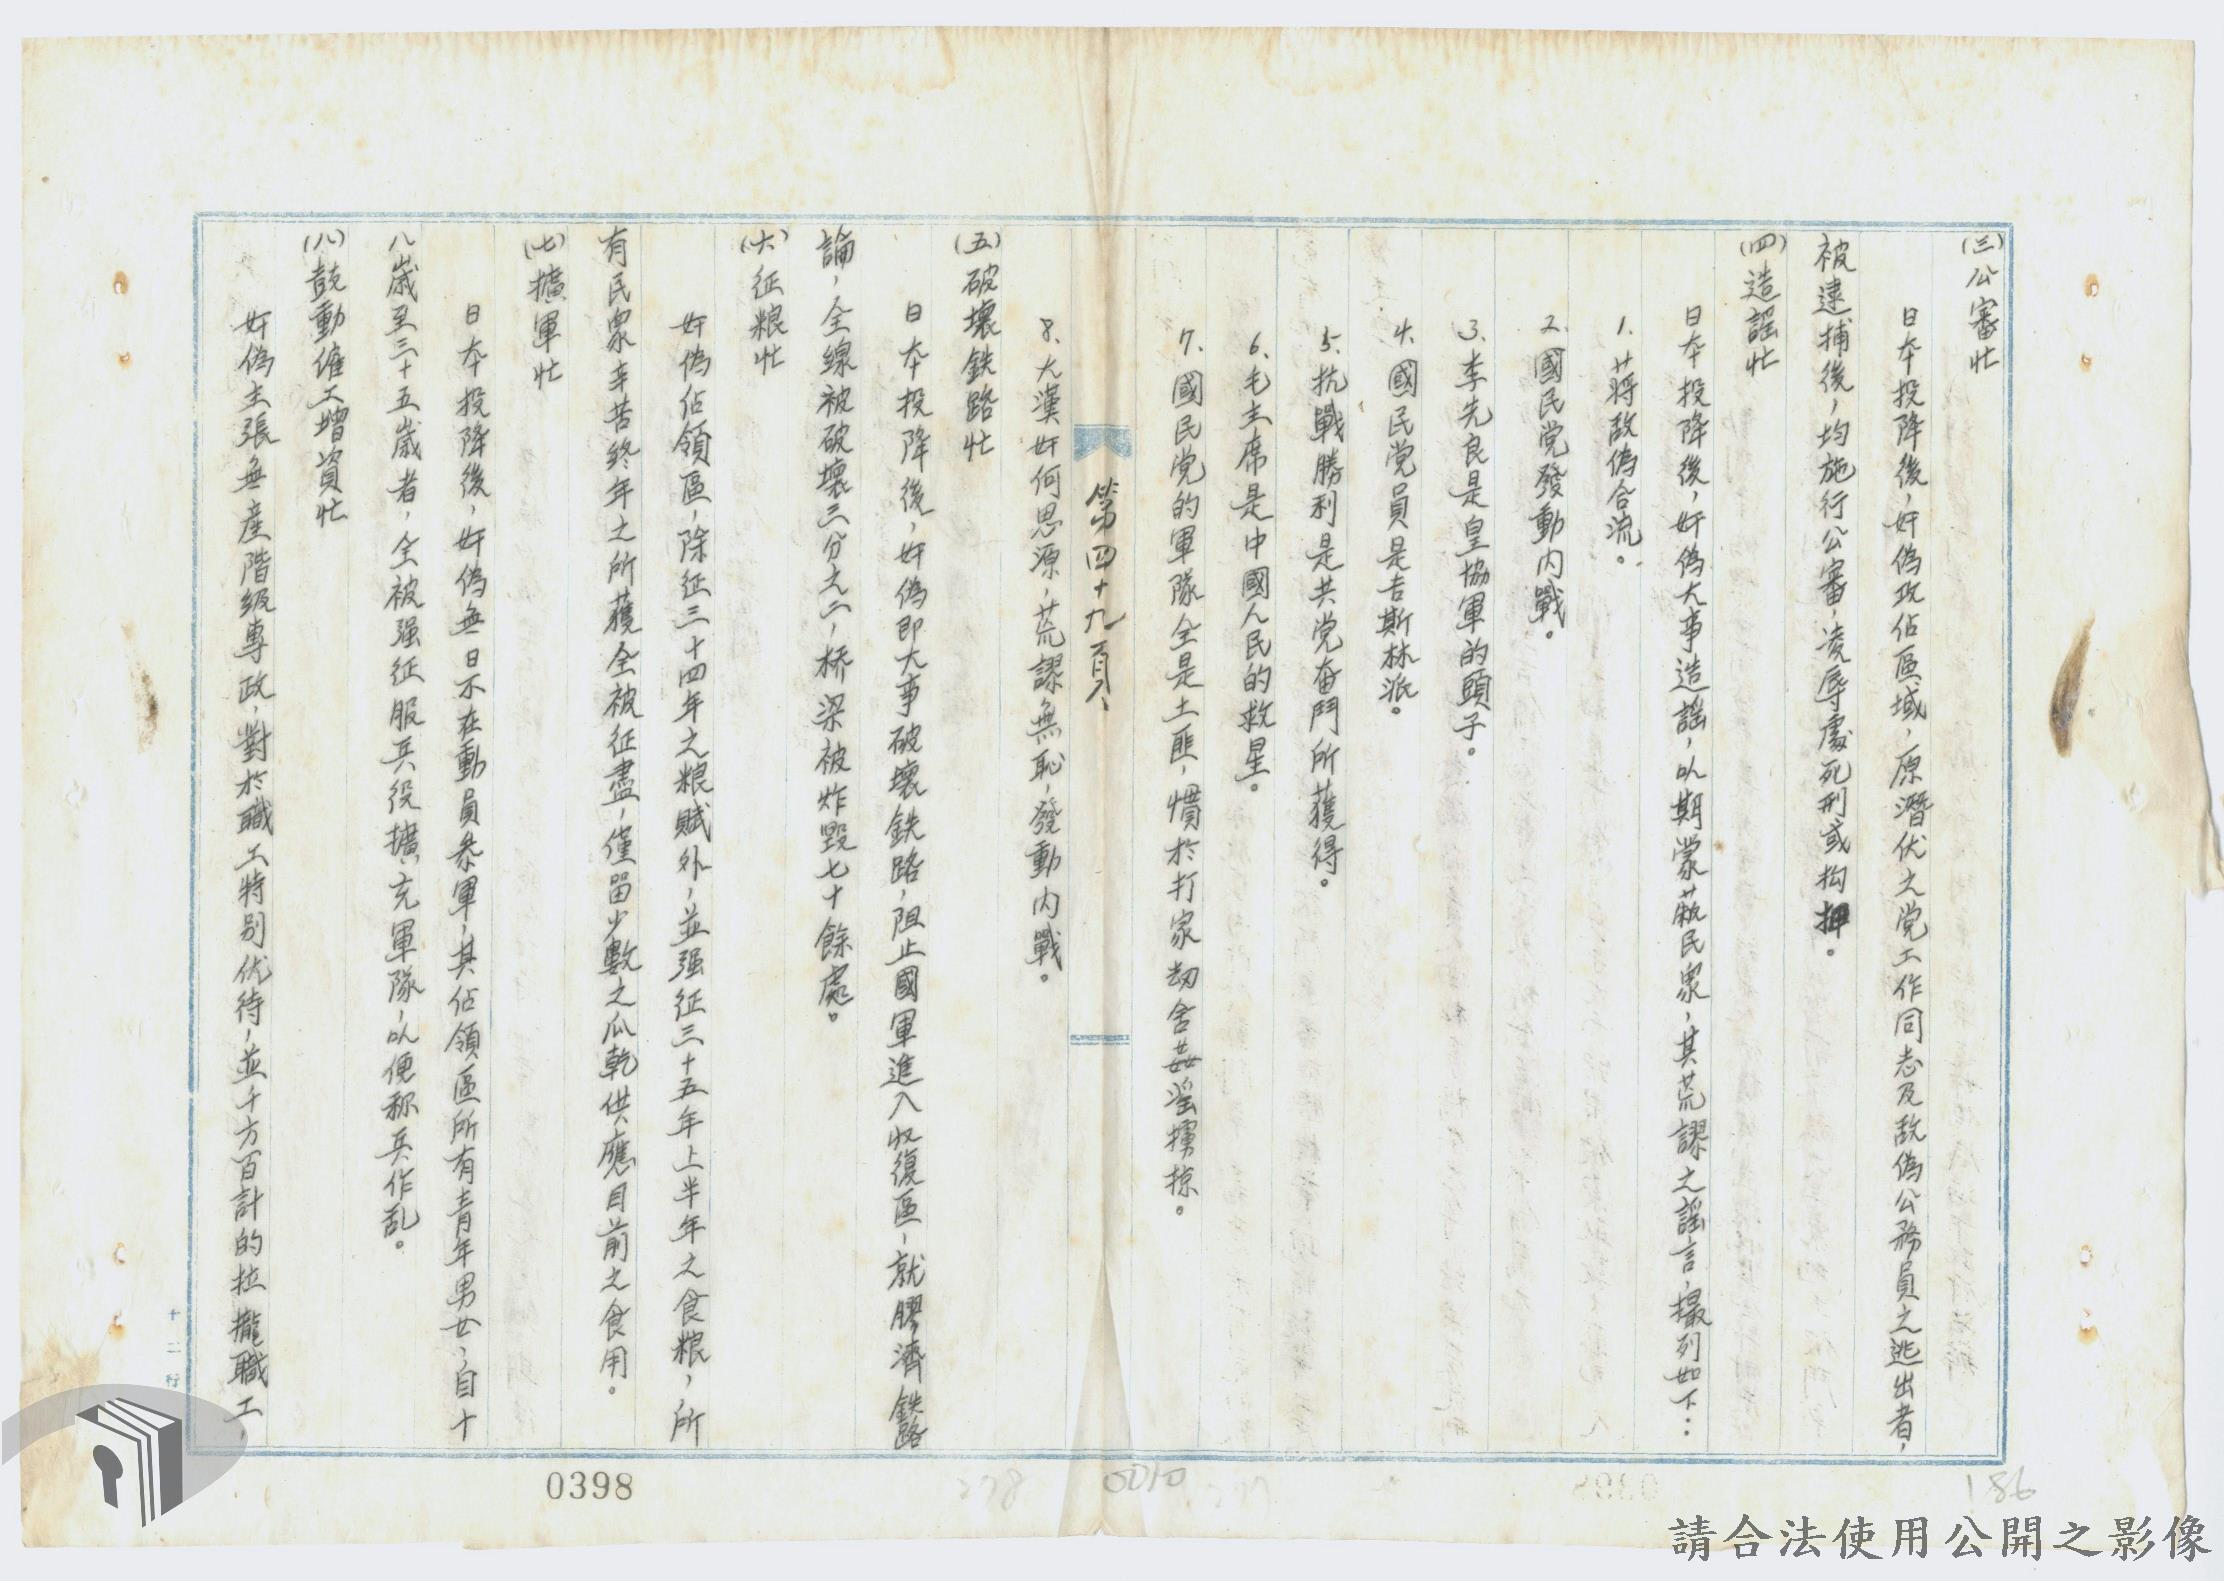 (三)公審忙
日本投降後，奸偽攻佔區域，原潛伏之党工作同志及敌偽公務員之逃出者，
被逮捕後，均施行公審，凌辱處死刑或拘押。
(四)造謡忙
日本投降後，奸偽大事造謡，以期蒙蔽民衆，其荒謬之謡言，撮列如下：
1.蔣敌偽合流。
2.國民党發動内戰。
3.李先良是皇協軍的頭子。
4.國民党員是吉斯林派。
5.抗戰勝利是共党奋鬥所獲得。
6.毛主席是中國人民的救星。
7.國民党的軍隊全是土匪，慣於打家劫舍姦淫擄掠。
第四十九頁
8.大漢奸何思源，荒謬無恥，發動内戰。
(五)破壞鉄路忙
日本投降後，奸偽即大事破壞鉄路，阻止國軍進入收復區，就膠濟鉄路
論，全線被破壞三分之二，桥梁被炸毀七十餘處。
(六)征粮忙
奸偽佔領區，除征三十四年之粮賦外，並强征三十五年上半年之食粮，所
有民衆辛苦終年之所獲全被征盡，僅留少數之瓜乾供應目前之食用。
(七)擴軍忙
日本投降後，奸偽無日不在動員參軍，其佔領區所有青年男女，自十
八歲至三十五歲者，全被强征服兵役擴充軍隊，以便称兵作乱。
(八)鼓動傭工增資忙
奸偽主張無產階級專政，對於職工特别优待，並千方百計的拉攏職工，
十二行
0398
278
0010
277
186
請合法使用公開之影像